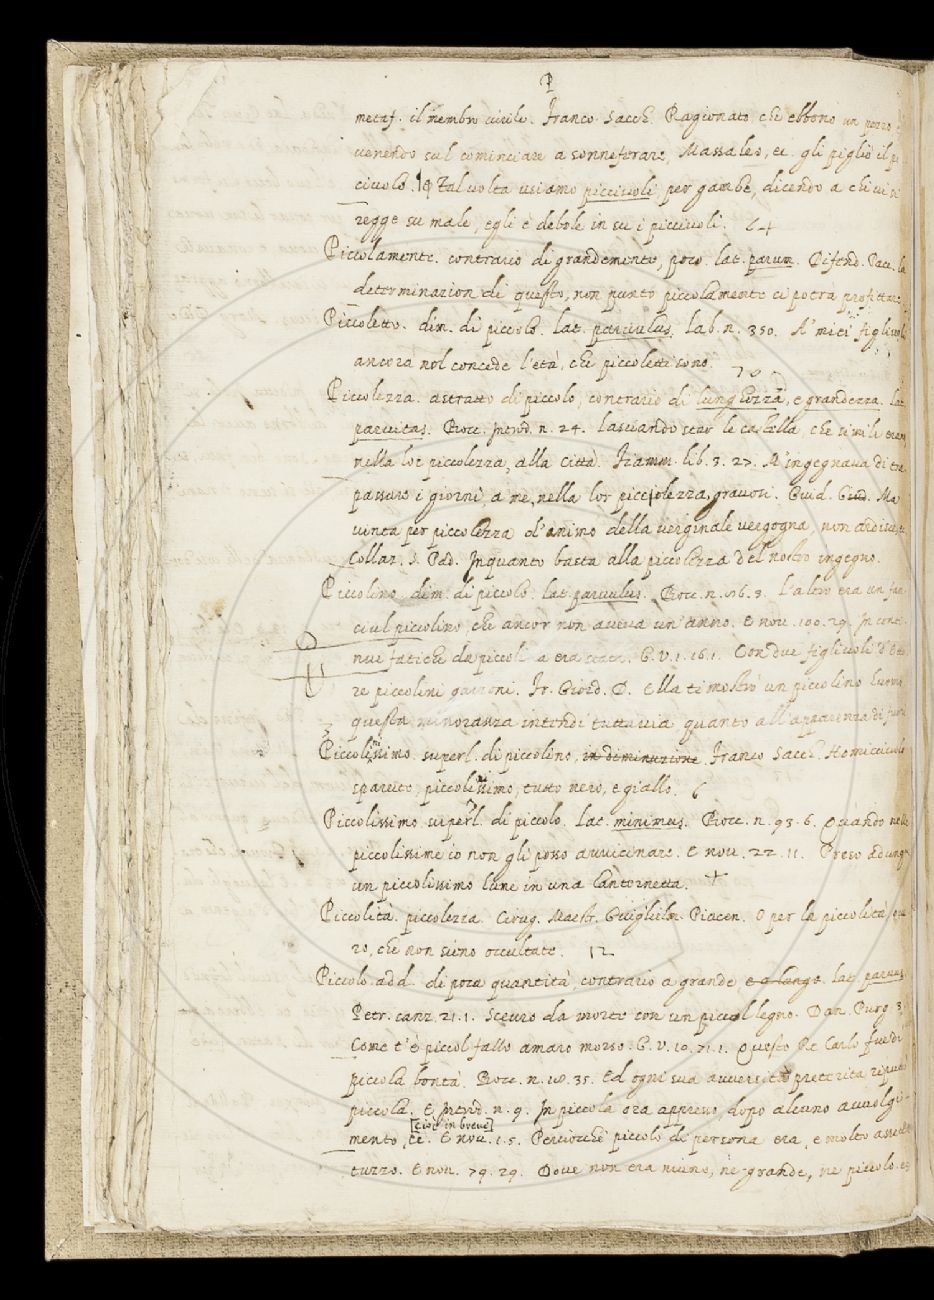 P
metaf. il membro virile. Franco Sacch. Ragionato, che ebbono un pezzo,
venendo sul cominciare a sonneferare, Massaleo, ec. gli pigliò il pi
ciuolo. Talvolta usiamo picciuoli per gambe, dicendo a chi si
regge su male, egli è debole in su i picciuoli.
Piccolamente. contrario di grandemente, poco. lat. parum. Difend. Pac. la
determinazion di questo, non punto piccolamente ci potrà profittare
Piccoletto. dim. di piccolo. lat. parvulus. lab. n. 350. A' miei figliuoli
ancora nol concede l'età, che piccoletti sono.
Piccolezza. astratto di piccolo, contrario di lunghezza, e grandezza. lat.
parvitas. Bocc. Introd. n. 24. lasciando star le castella, che simili eran
nella lor piccolezza, alla Città. Fiamm. lib. 3. 27. M'ingegnava di tra
passare i giorni, a me, nella lor picciolezza, gravosi. Guid. Giud. Ma
vinta per piccolezza d'animo della verginale vergogna, non ardisce,
Collaz. S. Pad. Inquanto basta alla piccolezza del nostro ingegno.
Piccolino. dim. di piccolo. lat. parvulus. Bocc. n. 16. 3. l'altro era un fan
ciul piccolino, che ancor non aveva un anno. E nov. 100. 29. In conti
nue fatiche da piccoli a era G. V. 1. 16. 1. Con due figliuoli d'Etto
re piccolini garzoni. Fr. Giord. D. Ella ti mostrò un piccolino lume
questa minoranza intendi tuttavia quanto all'apparenza di fuori
Piccolinissimo. superl. di piccolino, in diminuzione. Franco Sacch. Homicciuolo
sparuto, piccolissimo, tutto nero, e giallo. 6
Piccolissimo. superl. di piccolo. lat. minimus. Bocc. n. 93. 6. Quando nelle
piccolissime io non gli posso avvicinare. E nov. 22. 11. Preso adunque
un piccolissimo lume in una lanternetta. +
Piccolità. piccolezza. Cirug. Maestr. Guiglielm. Piacen. O per la piccolità,
ro, che non sieno occultate. 12
Piccolo. add. di poca quantità, contrario a grande e a lungo. lat. parvus.
Petr. canz. 21. 1. Scevro da morte con un piccol legno. Dan. Purg. 3.
Come t'è piccol fallo amaro morso. G. V. 10. 71. 1. Questo Re Carlo fue di
piccola bontà. Bocc. n. 18. 35. Ed ogni sua avversità preterita reputò
piccola. E Introd. n. 9. In piccola ora appresso, dopo alcuno avvolgi-
[cioè in breve]
mento, ec. E nov. 1. 5. Perciocchè piccolo di persona era, e molto assetta
tuzzo. E nov. 79. 29. Dove non era niuno, nè grande, ne piccolo. ec